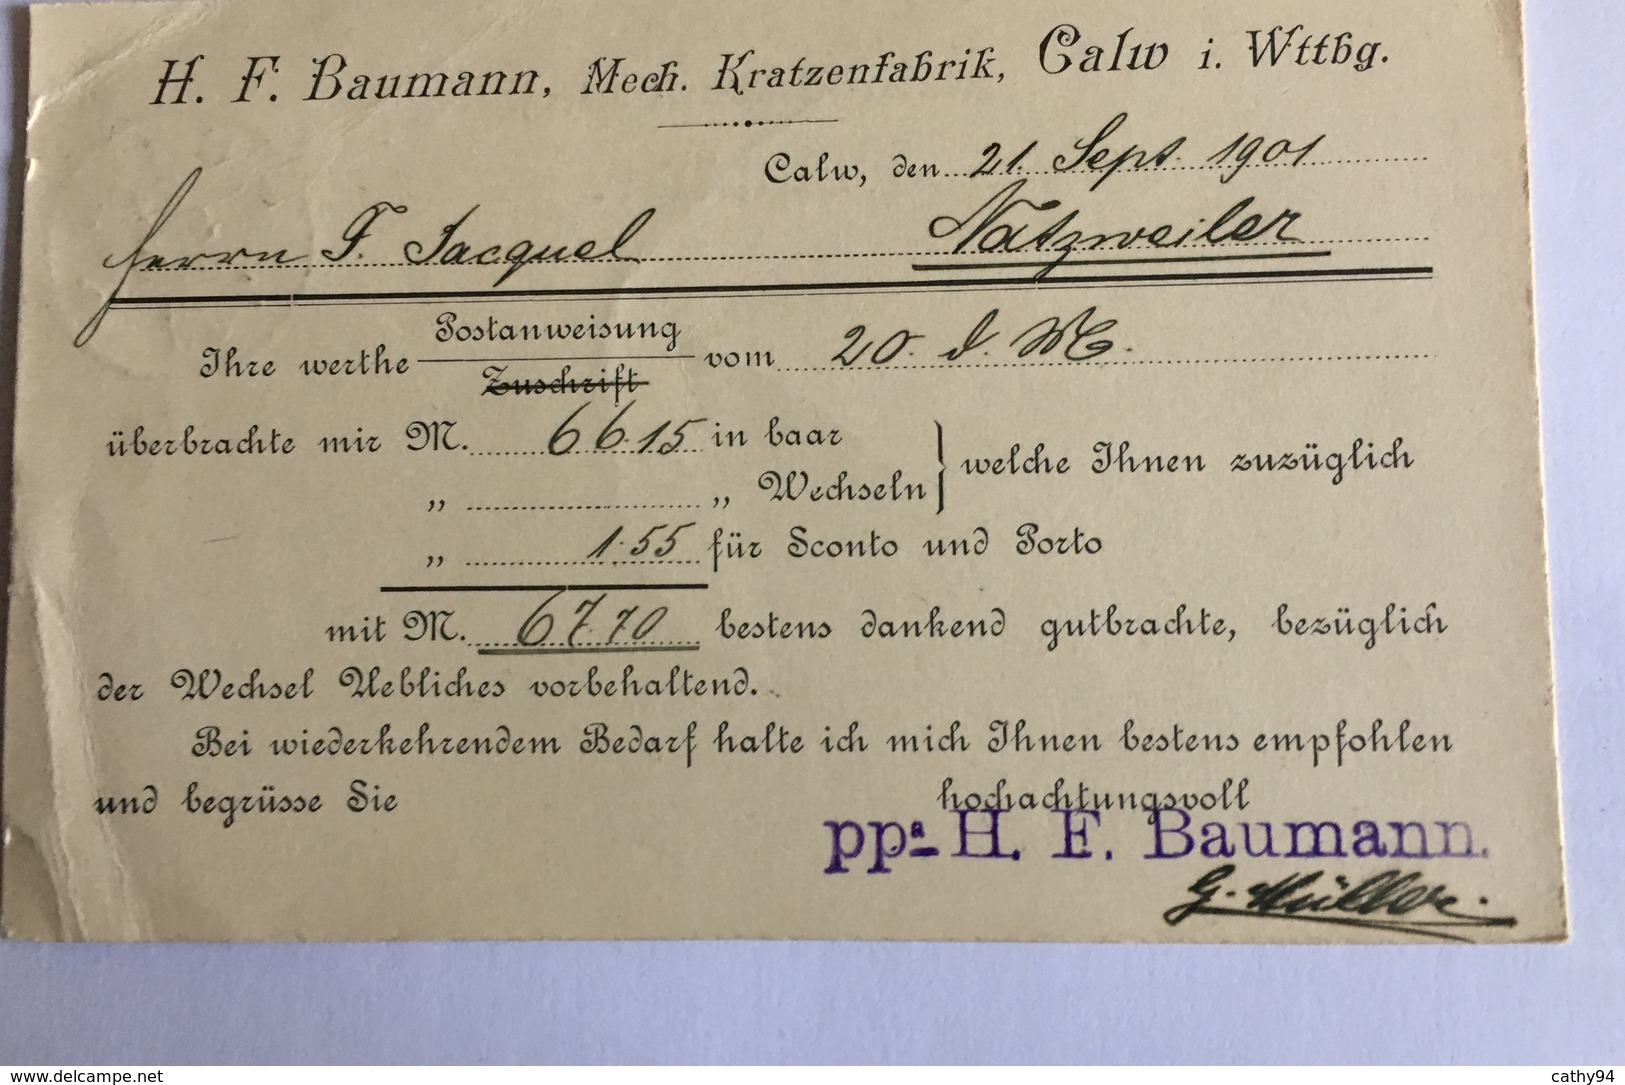 H. F. Baumann, Mech. Kratzenfabrik, Calw i. Wttbg.
Calw, den 21. Sept. 1901
Herrn F. Jacquel Natzweiler
Postanweisung
Ihre werthe vom 20. d. Mts.
Zuschrift
überbrachte mir M. 66.15 in baar
„ „ Wechseln } welche Ihnen zuzüglich
„ 1.55 für Sconto und Porto
mit M. 67.70 bestens dankend gutbrachte, bezüglich
der Wechsel Uebliches vorbehaltend.
Bei wiederkehrendem Bedarf halte ich mich Ihnen bestens empfohlen
und begrüsse Sie hochachtungsvoll
ppa H. F. Baumann.
G. Müller.
www.delcampe.net
cathy94